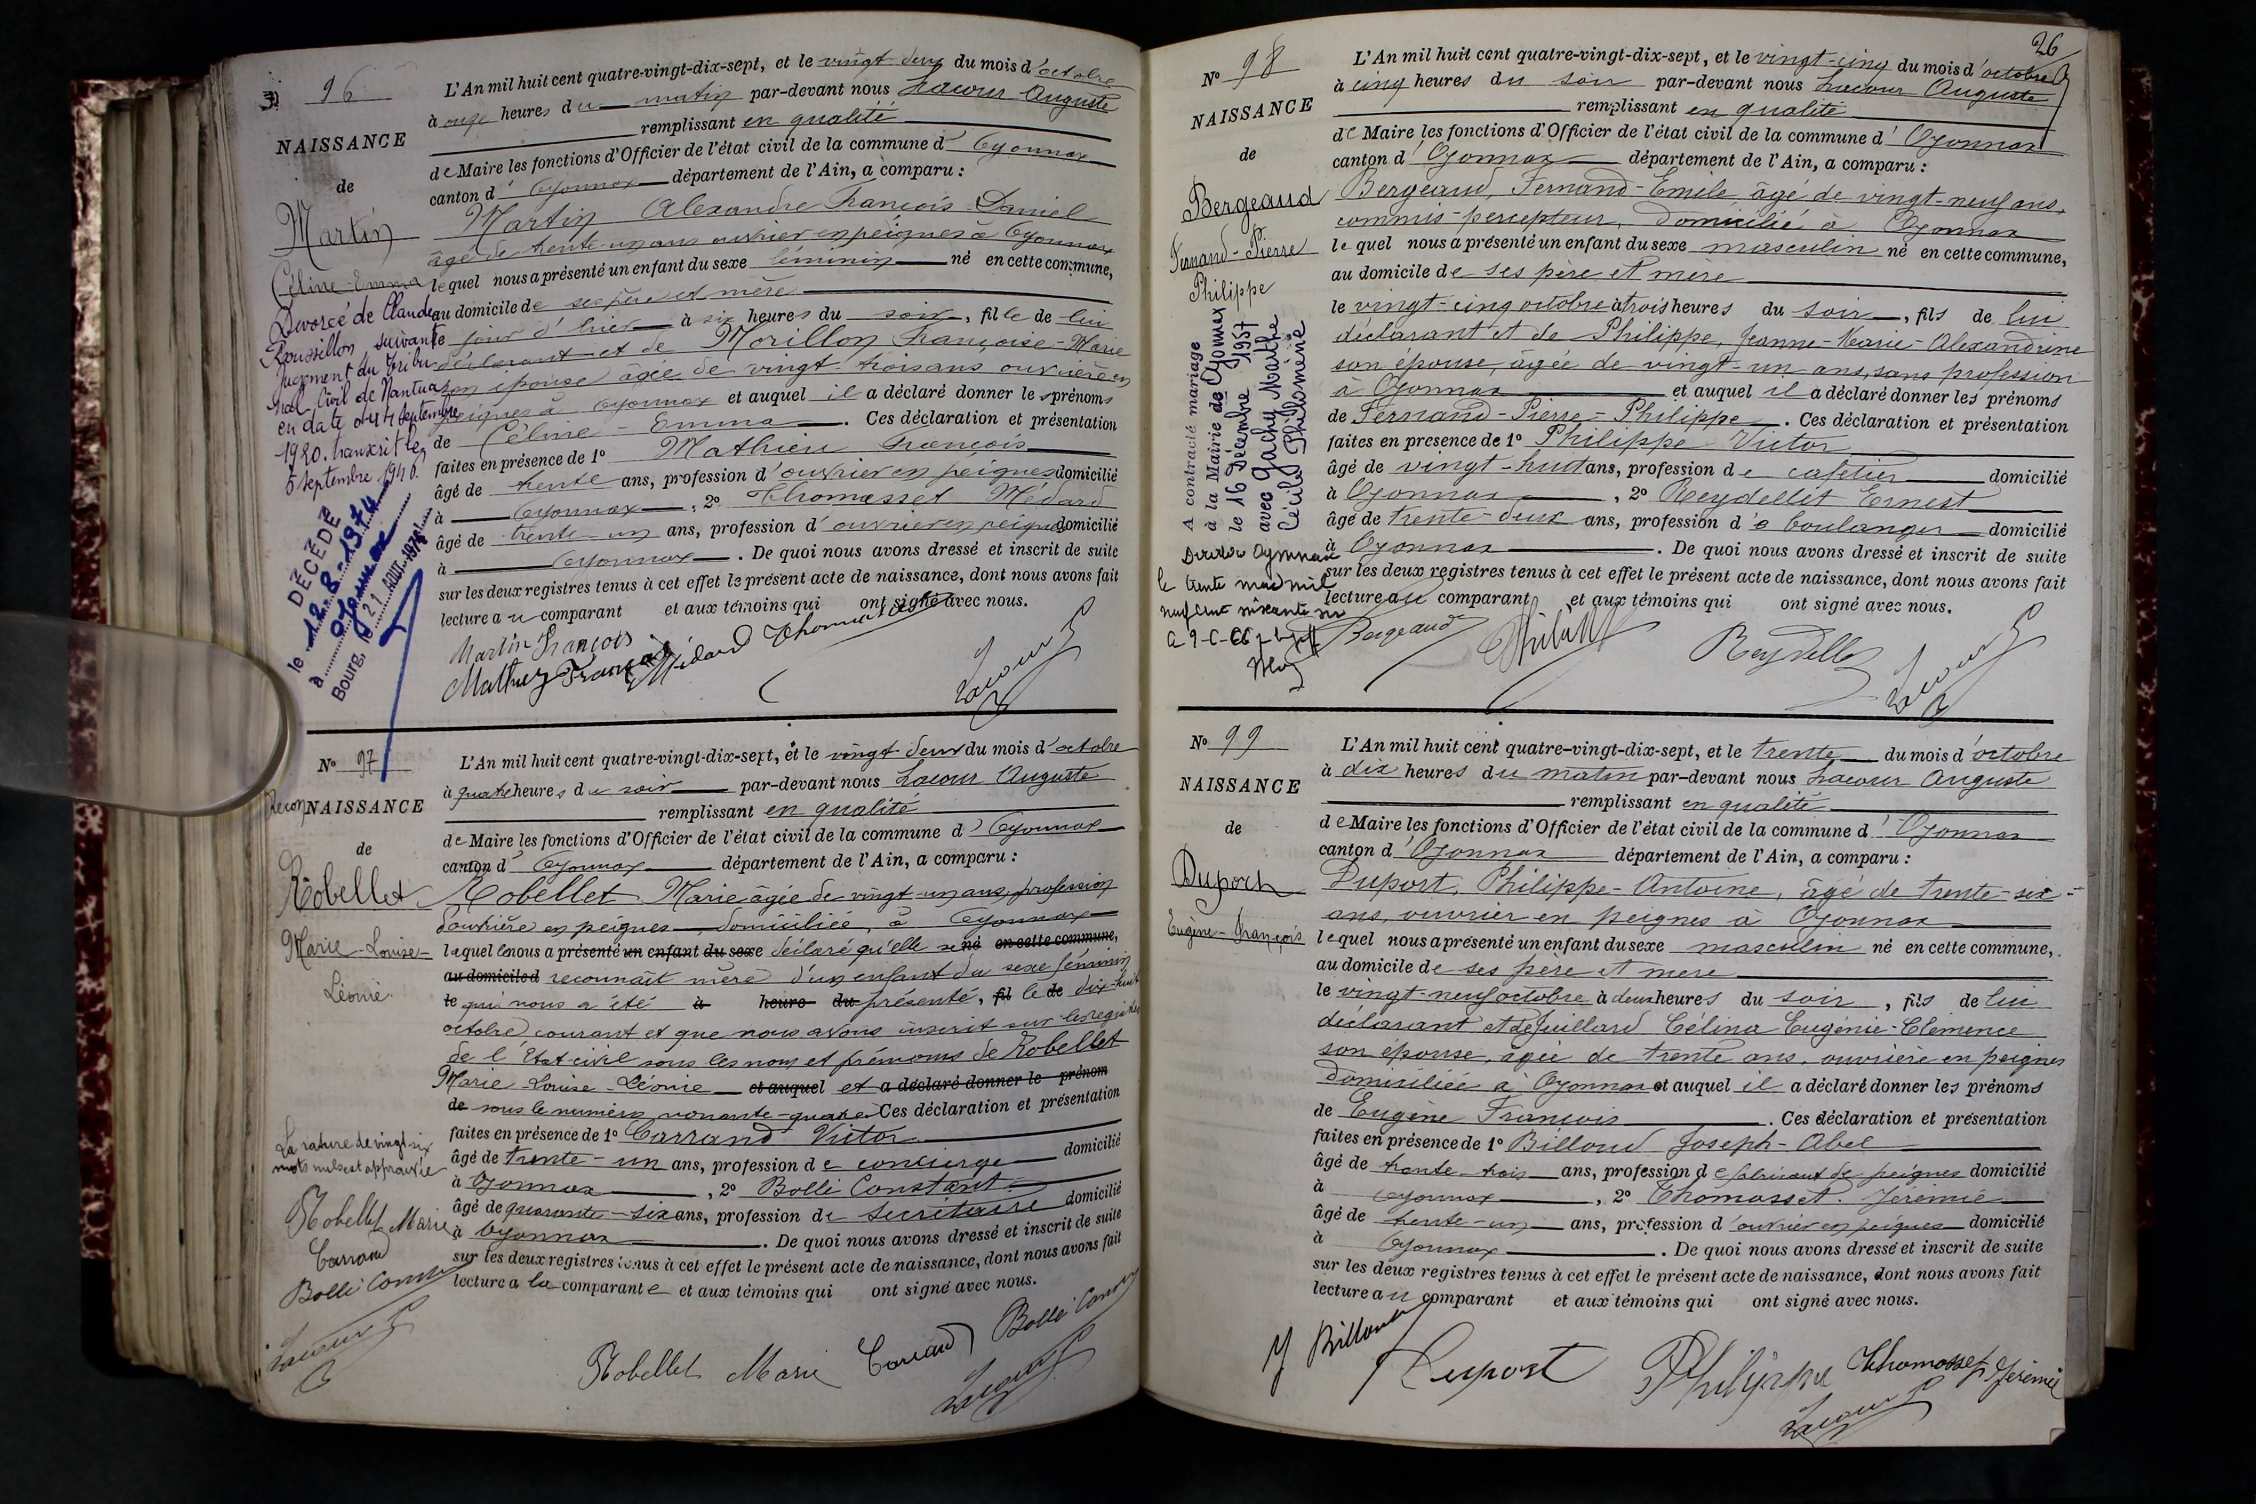 96
NAISSANCE
de
Martin
Céline-Emma
Divorcé de Claude
Roussillon suivant
jugement du Tribu-
nal Civil de Nantua
en date du 4 septembre
1920. transcrit le
5 septembre 1940.
DÉCÉDÉ
le 12-8-1974
à Oyonnax
Bourg, le 21 AOUT 1974
L'An mil huit cent quatre-vingt-dix-sept, et le vingt deux du mois d'octobre
à onze heures du matin par-devant nous Lacour Auguste
remplissant en qualité
de Maire les fonctions d'Officier de l'état civil de la commune d' Oyonnax
canton d' Oyonnax département de l'Ain, a comparu :
Martin Alexandre François Daniel
âgé de trente-un ans ouvrier en peignes à Oyonnax
lequel nous a présenté un enfant du sexe féminin né en cette commune,
au domicile de ses père et mère
le jour d'hier à six heures du soir, fille de lui
déclarant et de Morillon Françoise-Marie
son épouse âgée de vingt-trois ans ouvrière en
peignes à Oyonnax et auquel il a déclaré donner les prénoms
de Céline-Emma. Ces déclaration et présentation
faites en présence de 1° Mathieu François
âgé de trente ans, profession d'ouvrier en peignes domicilié
à Oyonnax, 2° Thomasset Médard
âgé de trente-un ans, profession d'ouvrier en peignes domicilié
à Oyonnax. De quoi nous avons dressé et inscrit de suite
sur les deux registres tenus à cet effet le présent acte de naissance, dont nous avons fait
lecture au comparant et aux témoins qui ont signé avec nous.
Martin François
Médard Thomasset
Lacour
N° 97
Recon
NAISSANCE
de
Robellet
Marie-Louise-
Léonie
La rature de vingt-six
mots nuls est approuvée
Robellet Marie
Carrand
Bollé Constant
Lacour
L'An mil huit cent quatre-vingt-dix-sept, et le vingt deux du mois d'octobre
à quatre heures du soir par-devant nous Lacour Auguste
remplissant en qualité
de Maire les fonctions d'Officier de l'état civil de la commune d' Oyonnax
canton d' Oyonnax département de l'Ain, a comparu :
Robellet Marie âgée de vingt-un ans, profession
d'ouvrière en peignes, domiciliée, à Oyonnax
laquelle nous a présenté un enfant du sexe déclaré qu'elle se né en cette commune,
au domicile d reconnaît mère d'un enfant du sexe féminin
le qui nous a été à heure du présenté, fil le de dix-huit
octobre courant et que nous avons inscrit sur les registres
de l'Etat-civil sous les nom et prénoms de Robellet
Marie Louise-Léonie et auquel et a déclaré donner le prénom
de sous le numéro nonante-quatre Ces déclaration et présentation
faites en présence de 1° Carrand Victor
âgé de trente-un ans, profession de concierge domicilié
à Oyonnax, 2° Bollé Constant
âgé de quarante-six ans, profession de secrétaire domicilié
à Oyonnax. De quoi nous avons dressé et inscrit de suite
sur les deux registres tenus à cet effet le présent acte de naissance, dont nous avons fait
lecture a la comparante et aux témoins qui ont signé avec nous.
Robellet Marie Carrand Bollé Const
Lacour
26
N° 98
NAISSANCE
de
Bergeaud
Fernand-Pierre
Philippe
A contracté mariage
à la Mairie de Oyonnax
le 16 Décembre 1937
avec Gachy Mathe
Cécile Philomène
Décédé à Oyonnax
le trente mai mil
neuf cent soixante six
L'An mil huit cent quatre-vingt-dix-sept, et le vingt-cinq du mois d'octobre
à cinq heures du soir par-devant nous Lacour Auguste
remplissant en qualité
de Maire les fonctions d'Officier de l'état civil de la commune d' Oyonnax
canton d' Oyonnax département de l'Ain, a comparu :
Bergeaud, Fernand-Emile, âgé de vingt-neuf ans,
commis-percepteur, domicilié à Oyonnax
lequel nous a présenté un enfant du sexe masculin né en cette commune,
au domicile de ses père et mère
le vingt-cinq octobre à trois heures du soir, fils de lui
déclarant et de Philippe, Jeanne-Marie-Alexandrine
son épouse, âgée de vingt-un ans, sans profession
à Oyonnax et auquel il a déclaré donner les prénoms
de Fernand-Pierre-Philippe. Ces déclaration et présentation
faites en présence de 1° Philippe Victor
âgé de vingt-huit ans, profession de cafetier domicilié
à Oyonnax, 2° Reydellet Ernest
âgé de trente-deux ans, profession de boulanger domicilié
à Oyonnax. De quoi nous avons dressé et inscrit de suite
sur les deux registres tenus à cet effet le présent acte de naissance, dont nous avons fait
lecture au comparant et aux témoins qui ont signé avec nous.
Bergeaud Reydellet
Lacour
N° 99
NAISSANCE
de
Duport
Eugène-François
L'An mil huit cent quatre-vingt-dix-sept, et le trente du mois d'octobre
à dix heures du matin par-devant nous Lacour Auguste
remplissant en qualité
de Maire les fonctions d'Officier de l'état civil de la commune d' Oyonnax
canton d' Oyonnax département de l'Ain, a comparu :
Duport, Philippe-Antoine, âgé de trente-six
ans, ouvrier en peignes à Oyonnax
lequel nous a présenté un enfant du sexe masculin né en cette commune,
au domicile de ses père et mère
le vingt-neuf octobre à deux heures du soir, fils de lui
déclarant et de Juillard Célina Eugénie-Clémence
son épouse, âgée de trente ans, ouvrière en peignes
domiciliée à Oyonnax et auquel il a déclaré donner les prénoms
de Eugène François. Ces déclaration et présentation
faites en présence de 1° Billoud Joseph-Abel
âgé de trente-trois ans, profession de fabricant de peignes domicilié
à Oyonnax, 2° Thomasset Jérémie
âgé de trente-un ans, profession d'ouvrier en peignes domicilié
à Oyonnax. De quoi nous avons dressé et inscrit de suite
sur les deux registres tenus à cet effet le présent acte de naissance, dont nous avons fait
lecture au comparant et aux témoins qui ont signé avec nous.
J Billoud
Duport Philippe Thomasset Jérémie
Lacour